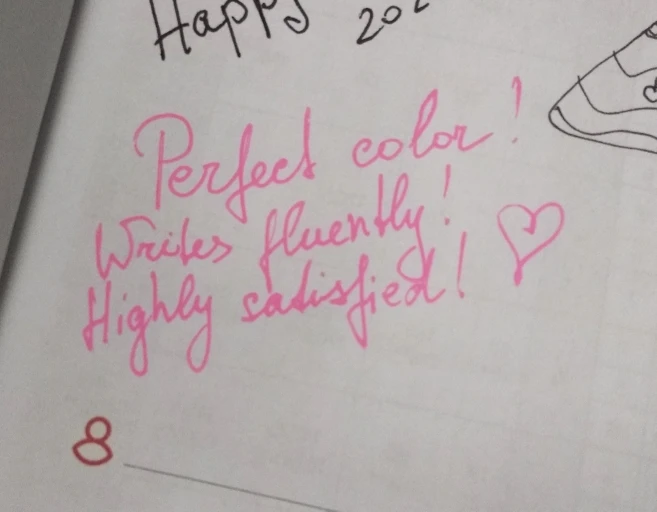 Happy
Perfect color!
Writes fluently!
Highly satisfied! ♡
8